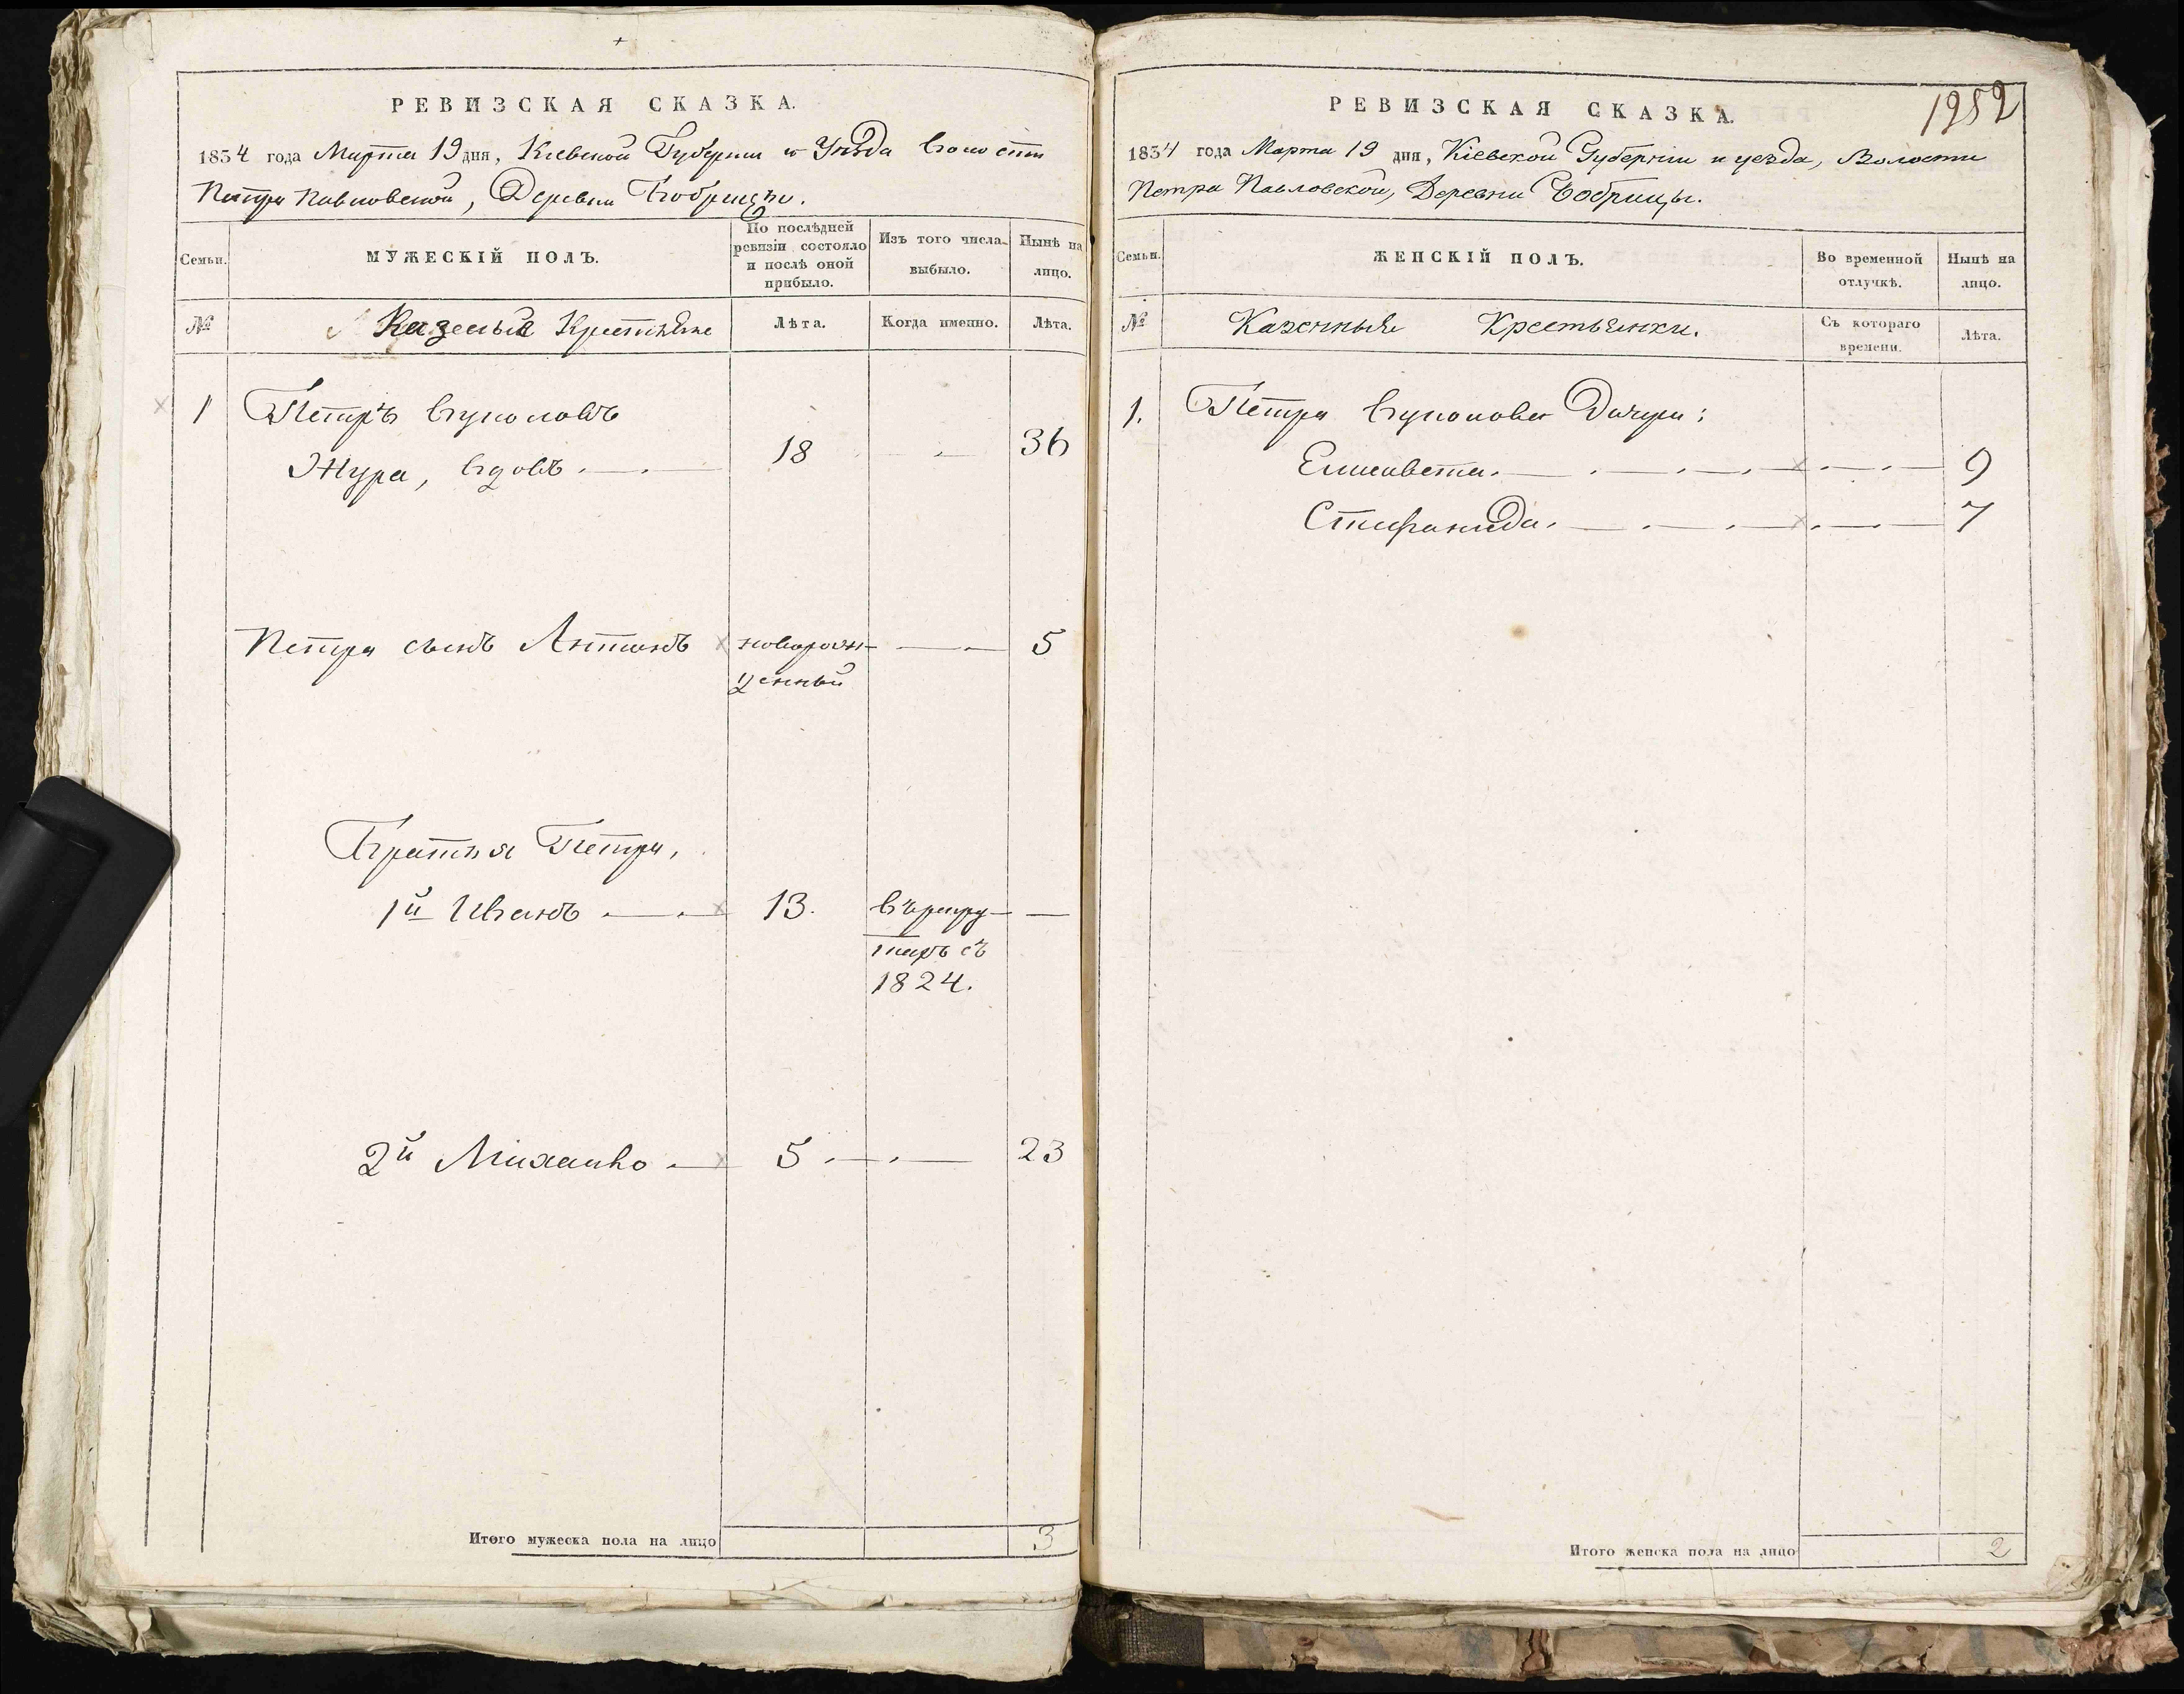 РЕВИЗСКАЯ СКАЗКА.
1834 года Марта 19 дня, Кіевской Губерніи и Уѣзда Волости
Петра Павловской, Деревни Бобрицы.
Семьи.
МУЖЕСКІЙ ПОЛЪ.
По послѣдней
ревизіи состояло
и послѣ оной
прибыло.
Изъ того числа
выбыло.
Нынѣ на
лицо.
№
Казеныя Крестьяне
Лѣта.
Когда именно.
Лѣта.
1 Петръ
Жура, вдовъ 18 36
Петра сынъ Антонъ новорож- 5
денный
Братья Петра,
1й Иванъ 13. въ рекру-
тахъ съ
1824.
2й Михайло 5 23
Итого мужеска пола на лицо 3
1252
РЕВИЗСКАЯ СКАЗКА.
1834 года Марта 19 дня, Кіевской Губерніи и уезда, Волости
Петра Павловской, Деревни Бобрицы.
Семьи.
ЖЕНСКІЙ ПОЛЪ.
Во временной
отлучкѣ.
Нынѣ на
лицо.
№
Казенныя Крестьянки.
Съ котораго
времени.
Лѣта.
1. Петра Дочери:
Елисавета. 9
Стефанида. 7
Итого женска пола на лицо 2